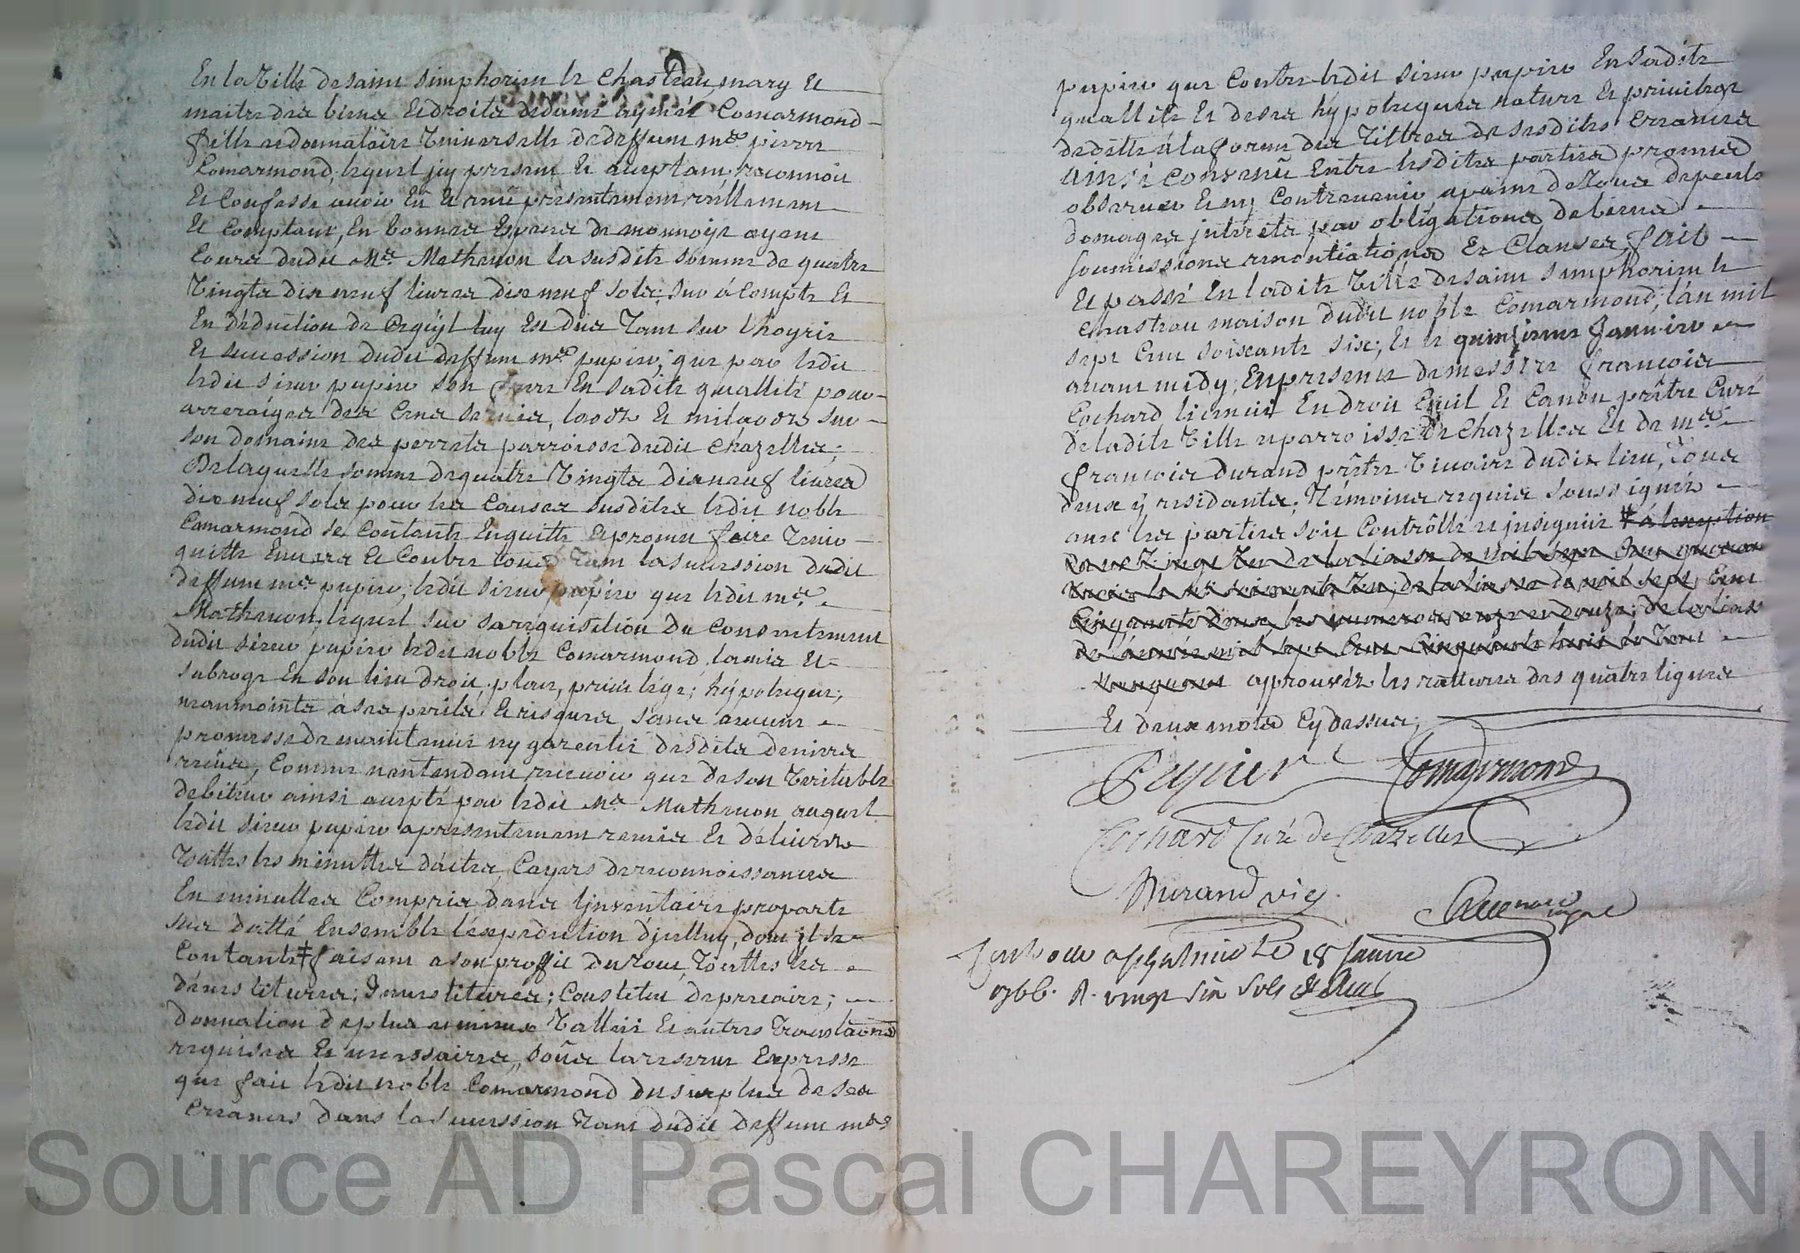 En la Ville de saint simphorien le chasteau, mary et
maitre des biens et droits de dame aymée Comarmond
fille et donnataire Universelle de deffunt me. pierre
Comarmond, lequel icy present et aceptant, reconnoit
et Confesse avoir eu et reçeu présentement reellement
et Comptant, En bonnes Especes de monnoye ayant
Cours dudit Me. Mathevon la susdite somme de quatre
Vingts dix neuf livres dix neuf sols; sur à compte et
En déduction de Ce qu'jl luy Est dus tant sur l'hoyrie
et succession dudit deffunt me. pupier; que par ledit
ledit sieur pupier son frere En sadite quallité pour
arreraiges des Cens servis, laods et milaods sur
son domaine des perrets parroisse dudit Chazelles;
De laquelle somme de quatre Vingts dix neuf livres
dix neuf sols pour les Causes susdites ledit noble
Comarmond se Contante En quitte et promet faire tenir
quitte Envers et Contre tous tant la succession dudit
deffunt me pupier; ledit sieur pupier que ledit me.
Mathevon, lequel sur sa requisition du Consentement
dudit sieur pupier ledit noble Comarmond, la mis et
subrogé En son lieu droit, place, privilége; hypoteque;
neanmoints à ses perils et risques, sans aucune
promesse de maintenir ny garentir desdits deniers
reçus, Comme n'entendant recevoir que de son Veritable
debiteur ainsi accepté par ledit Me Mathevon auquel
ledit sieur pupier a présentement remis et délivré
touttes les minuttes d'actes, Cayers de reconnoissances
En minuttes Compris dans l'jnventaire proparte
sus datté Ensemble l'éxpédition d'jcelluy, dont jl se
Contante ‡ faisant a son proffit du tout touttes les
devestitures; Jnvestitures; Constitut de precaire;
donnation de plus et autres translations
requises et necessaires, sous la reserve Expresse
que fait ledit noble Comarmond du surplus de ses
Creances dans la succession tant dudit deffunt me
pupier que Contre ledit sieur pupier En sadite
quallité et de ses hypoteques nature et privilege
de dette à la forme des tittres de sesdites Creances
Ainsi convenu Entre lesdites parties promis
observer et ny Contrevenir, a paine de tous depents
domages jnterets par obligations de biens
soumissions renontiations et Clauses, fait
et passé En ladite Ville de saint simphorien le
chasteau maison dudit noble Comarmond; l'an mil
sept Cent soixante six; et le quinzieme Janvier
avant midy; En presence de messire François
Cochard licentié En droit Civil et Canon prêtre Curé
de ladite Ville et parroisse de Chazelles et de me.
François Durand prêtre Vicaire dudit lieu, tous
deux y residants; témoins requis soussignés
avec les parties soit Contrôllé et jnsignué ‡ à l'exeption
approuvées les ratures des quatre lignes
Et deux mots Cy dessus;
Pupier Comarmond
Cochard Curé de Chazelles
Durand vic.
le 18 janvier
1766. R. vingt six sols
Source AD Pascal CHAREYRON